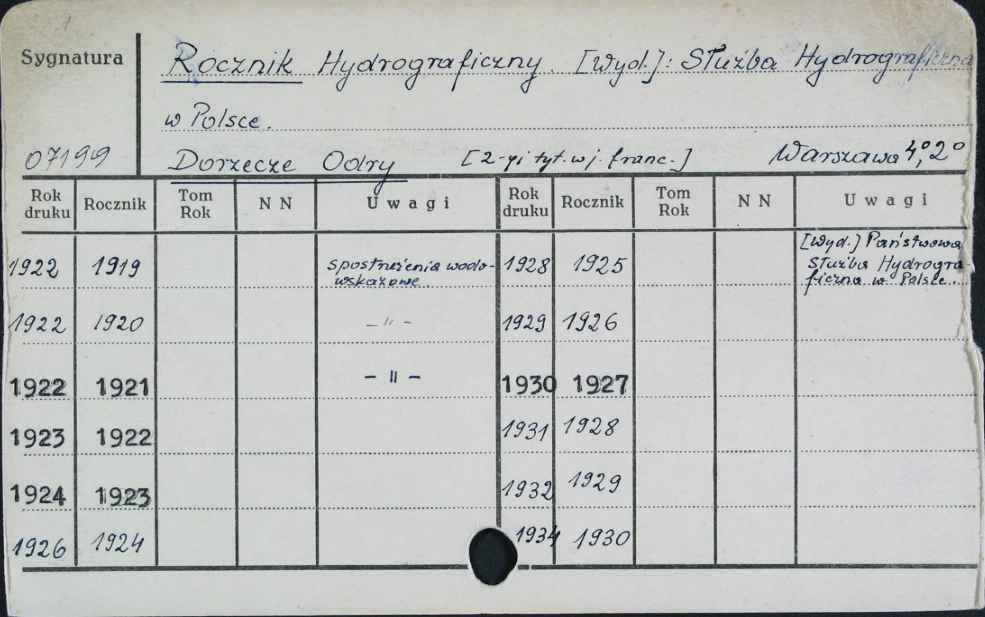 Sygnatura Rocznik Hydrograficzny. [Wyd.]: Służba Hydrograficzna
w Polsce.
07199 Dorzecze Odry [2-gi tyt. w j. franc.] Warszawa 4°, 2°
Rok druku Rocznik Tom Rok N N Uwagi Rok druku Rocznik Tom Rok N N Uwagi
1922 1919 spostrzeżenia wodo-wskazowe. 1928 1925 [Wyd.] Państwowa Służba Hydrogra-ficzna w Polsce.
1922 1920 – " – 1929 1926
1922 1921 – " – 1930 1927
1923 1922 1931 1928
1924 1923 1932 1929
1926 1924 1934 1930